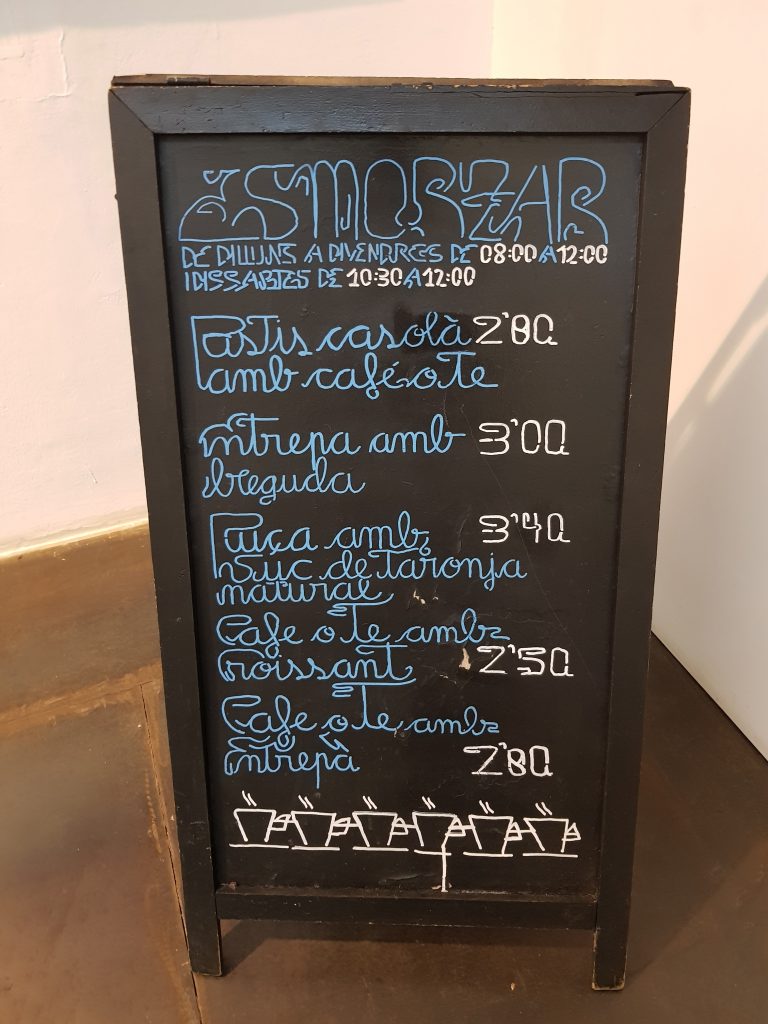 ESMORZAR
DE DILLUNS A DIVENDRES DE 08:00 A 12:00
I DISSABTES DE 10:30 A 12:00
Pastis casolà 2'80
amb café o Te
Entrepa amb 3'00
beguda
Suïça amb 3'40
Suc de Taronja
natural
Cafe o Te amb
Croissant 2'50
Cafe o Te amb
Entrepà 2'80